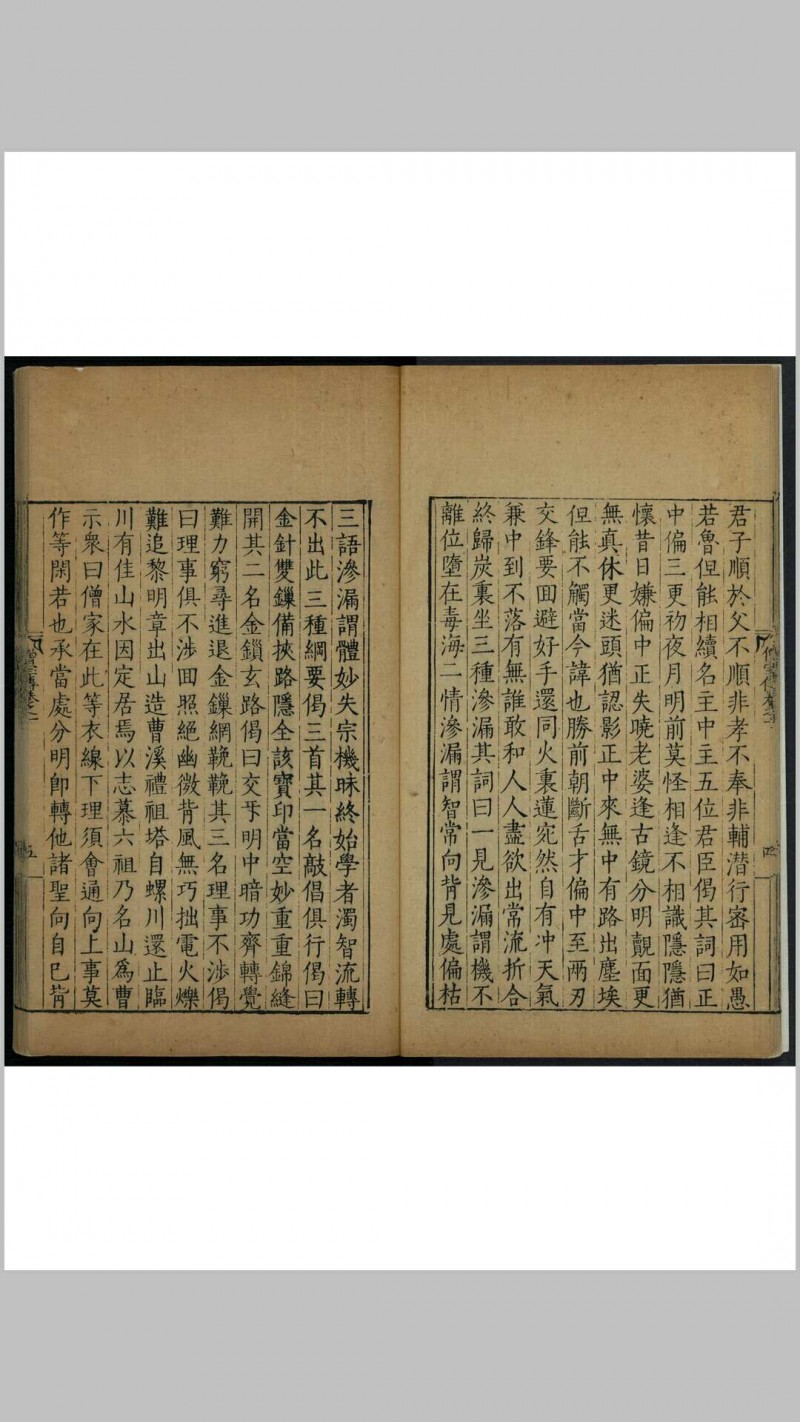 君子順於父不順非孝不奉非輔潛行密用如愚
若魯但能相續名主中主五位君臣偈其詞曰正
中偏三更初夜月明前莫怪相逢不相識隱隱猶
懷昔日嫌偏中正失曉老婆逢古鏡分明覿面更
無真休更迷頭猶認影正中來無中有路出塵埃
但能不觸當今諱也勝前朝斷舌才偏中至兩刃
交鋒要回避好手還同火裏蓮宛然自有冲天氣
兼中到不落有無誰敢和人人盡欲出常流折合
終歸炭裏坐三種滲漏其詞曰一見滲漏謂機不
離位墮在毒海二情滲漏謂智常向背見處偏枯
三語滲漏謂體妙失宗機昧終始學者濁智流轉
不出此三種綱要偈三首其一名敲倡俱行偈曰
金針雙鏁備挾路隱全該寶印當空妙重重錦縫
開其二名金鎖玄路偈曰交互明中暗功齊轉覺
難力窮尋進退金鏁網鞔鞔其三名理事不涉偈
曰理事俱不涉回照絕幽微背風無巧拙電火爍
難追黎明章出山造曹溪禮祖塔自螺川還止臨
川有佳山水因定居焉以志慕六祖乃名山為曹
示衆曰僧家在此等衣線下理須會通向上事莫
作等閑若也承當處分明即轉他諸聖向自己背